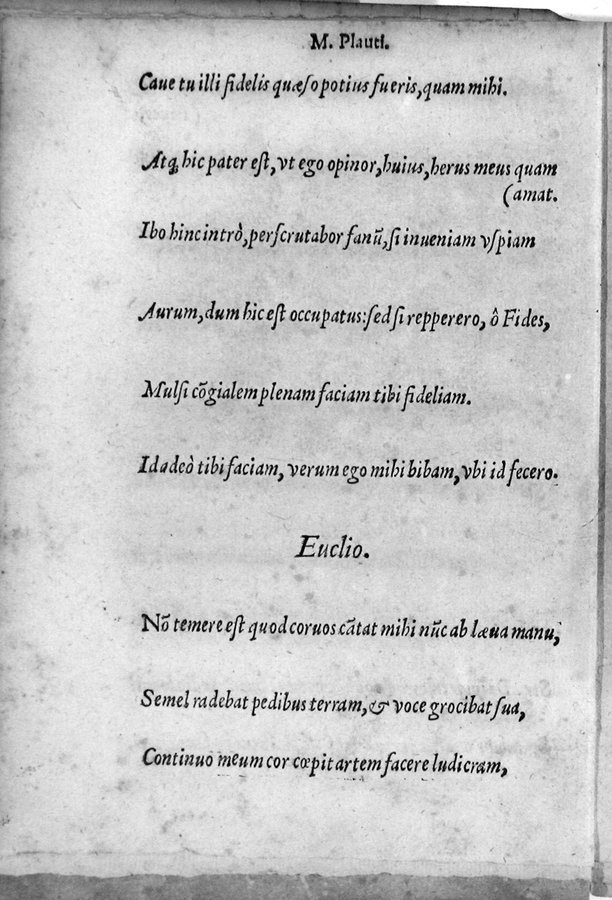 M. Plauti.
Caue tu illi fidelis quæſo potius fueris, quam mihi.
Atq; hic pater eſt, vt ego opinor, huius, herus meus quam
(amat.
Ibo hinc intrò, perſcrutabor fanū, ſi inueniam vſpiam
Aurum, dum hic eſt occupatus: ſed ſi repperero, ô Fides,
Mulſi cōgialem plenam faciam tibi fideliam.
Id adeò tibi faciam, verum ego mihi bibam, vbi id fecero.
Euclio.
Nō temere eſt quod coruos cātat mihi nūc ab læua manu;
Semel radebat pedibus terram, & voce grocibat ſua,
Continuo meum cor cœpit artem facere ludicram,